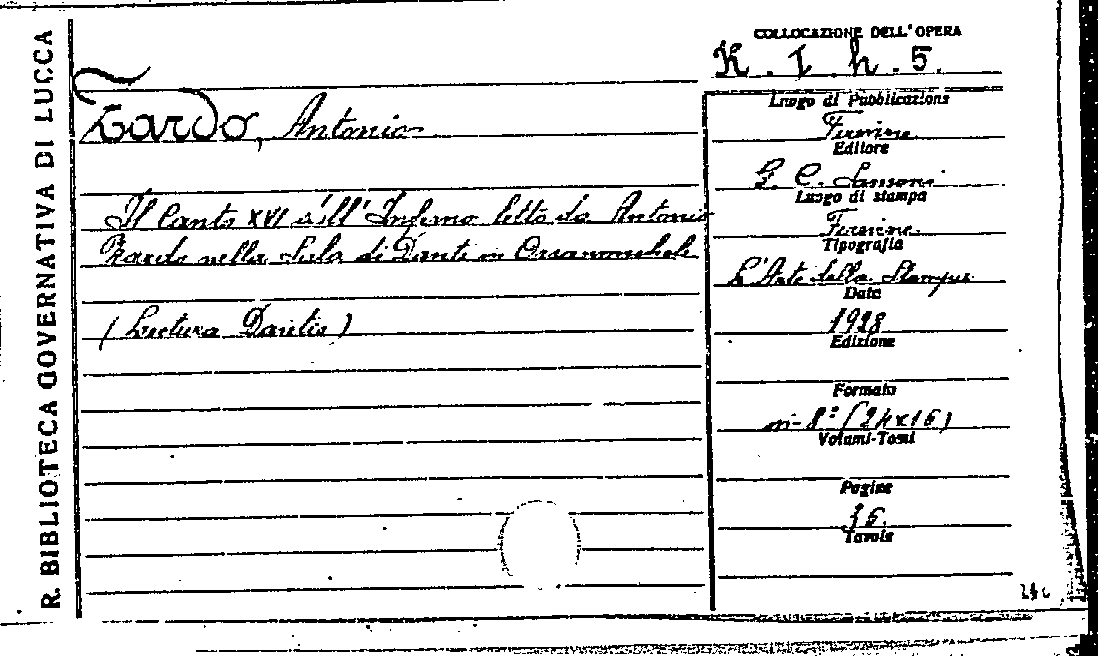 R. BIBLIOTECA GOVERNATIVA DI LUCCA
COLLOCAZIONE DELL'OPERA
K. I. h. 5.
Zardo, Antonio
Il Canto XVI dell'Inferno letto da Antonio
Zardo nella Sala di Dante in Orsanmichele
(Lectura Dantis)
Luogo di Pubblicazione
Firenze
Editore
G. C. Sansoni
Luogo di stampa
Firenze
Tipografia
L'Arte della Stampa
Data
1928
Edizione
Formato
in-8° (24x16)
Volumi-Tomi
Pagine
36.
Tavole